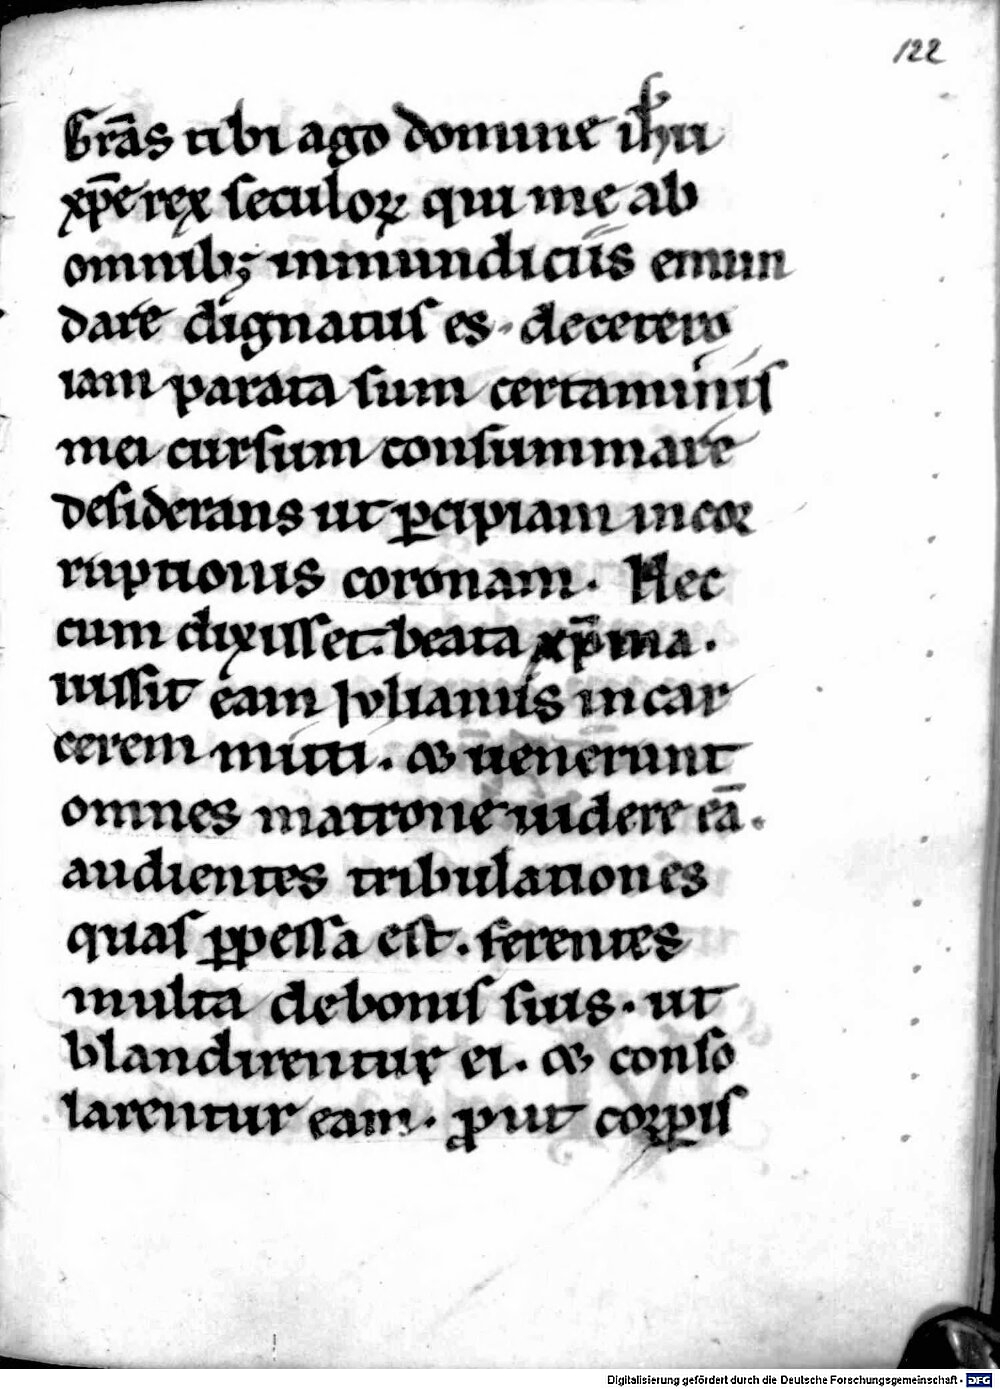 122
Gr̄as tibi ago domine ihu
xp̄e rex seculoꝝ qui me ab
omnibꝫ inmundiciis emun
dare dignatus es · decetero
iam parata sum certaminis
mei cursum consummare
desiderans ut ꝑcipiam incor
ruptionis coronam · Hec
cum dixisset · beata xp̄ina ·
iussit eam Iulianus in car
cerem mitti · & uenerunt
omnes matrone uidere eā ·
audientes tribulationes
quas ꝑpessa est · ferentes
multa de bonis suis · ut
blandirentur ei · & conso
larentur eam · ꝓut corꝑis
Digitalisierung gefördert durch die Deutsche Forschungsgemeinschaft - DFG